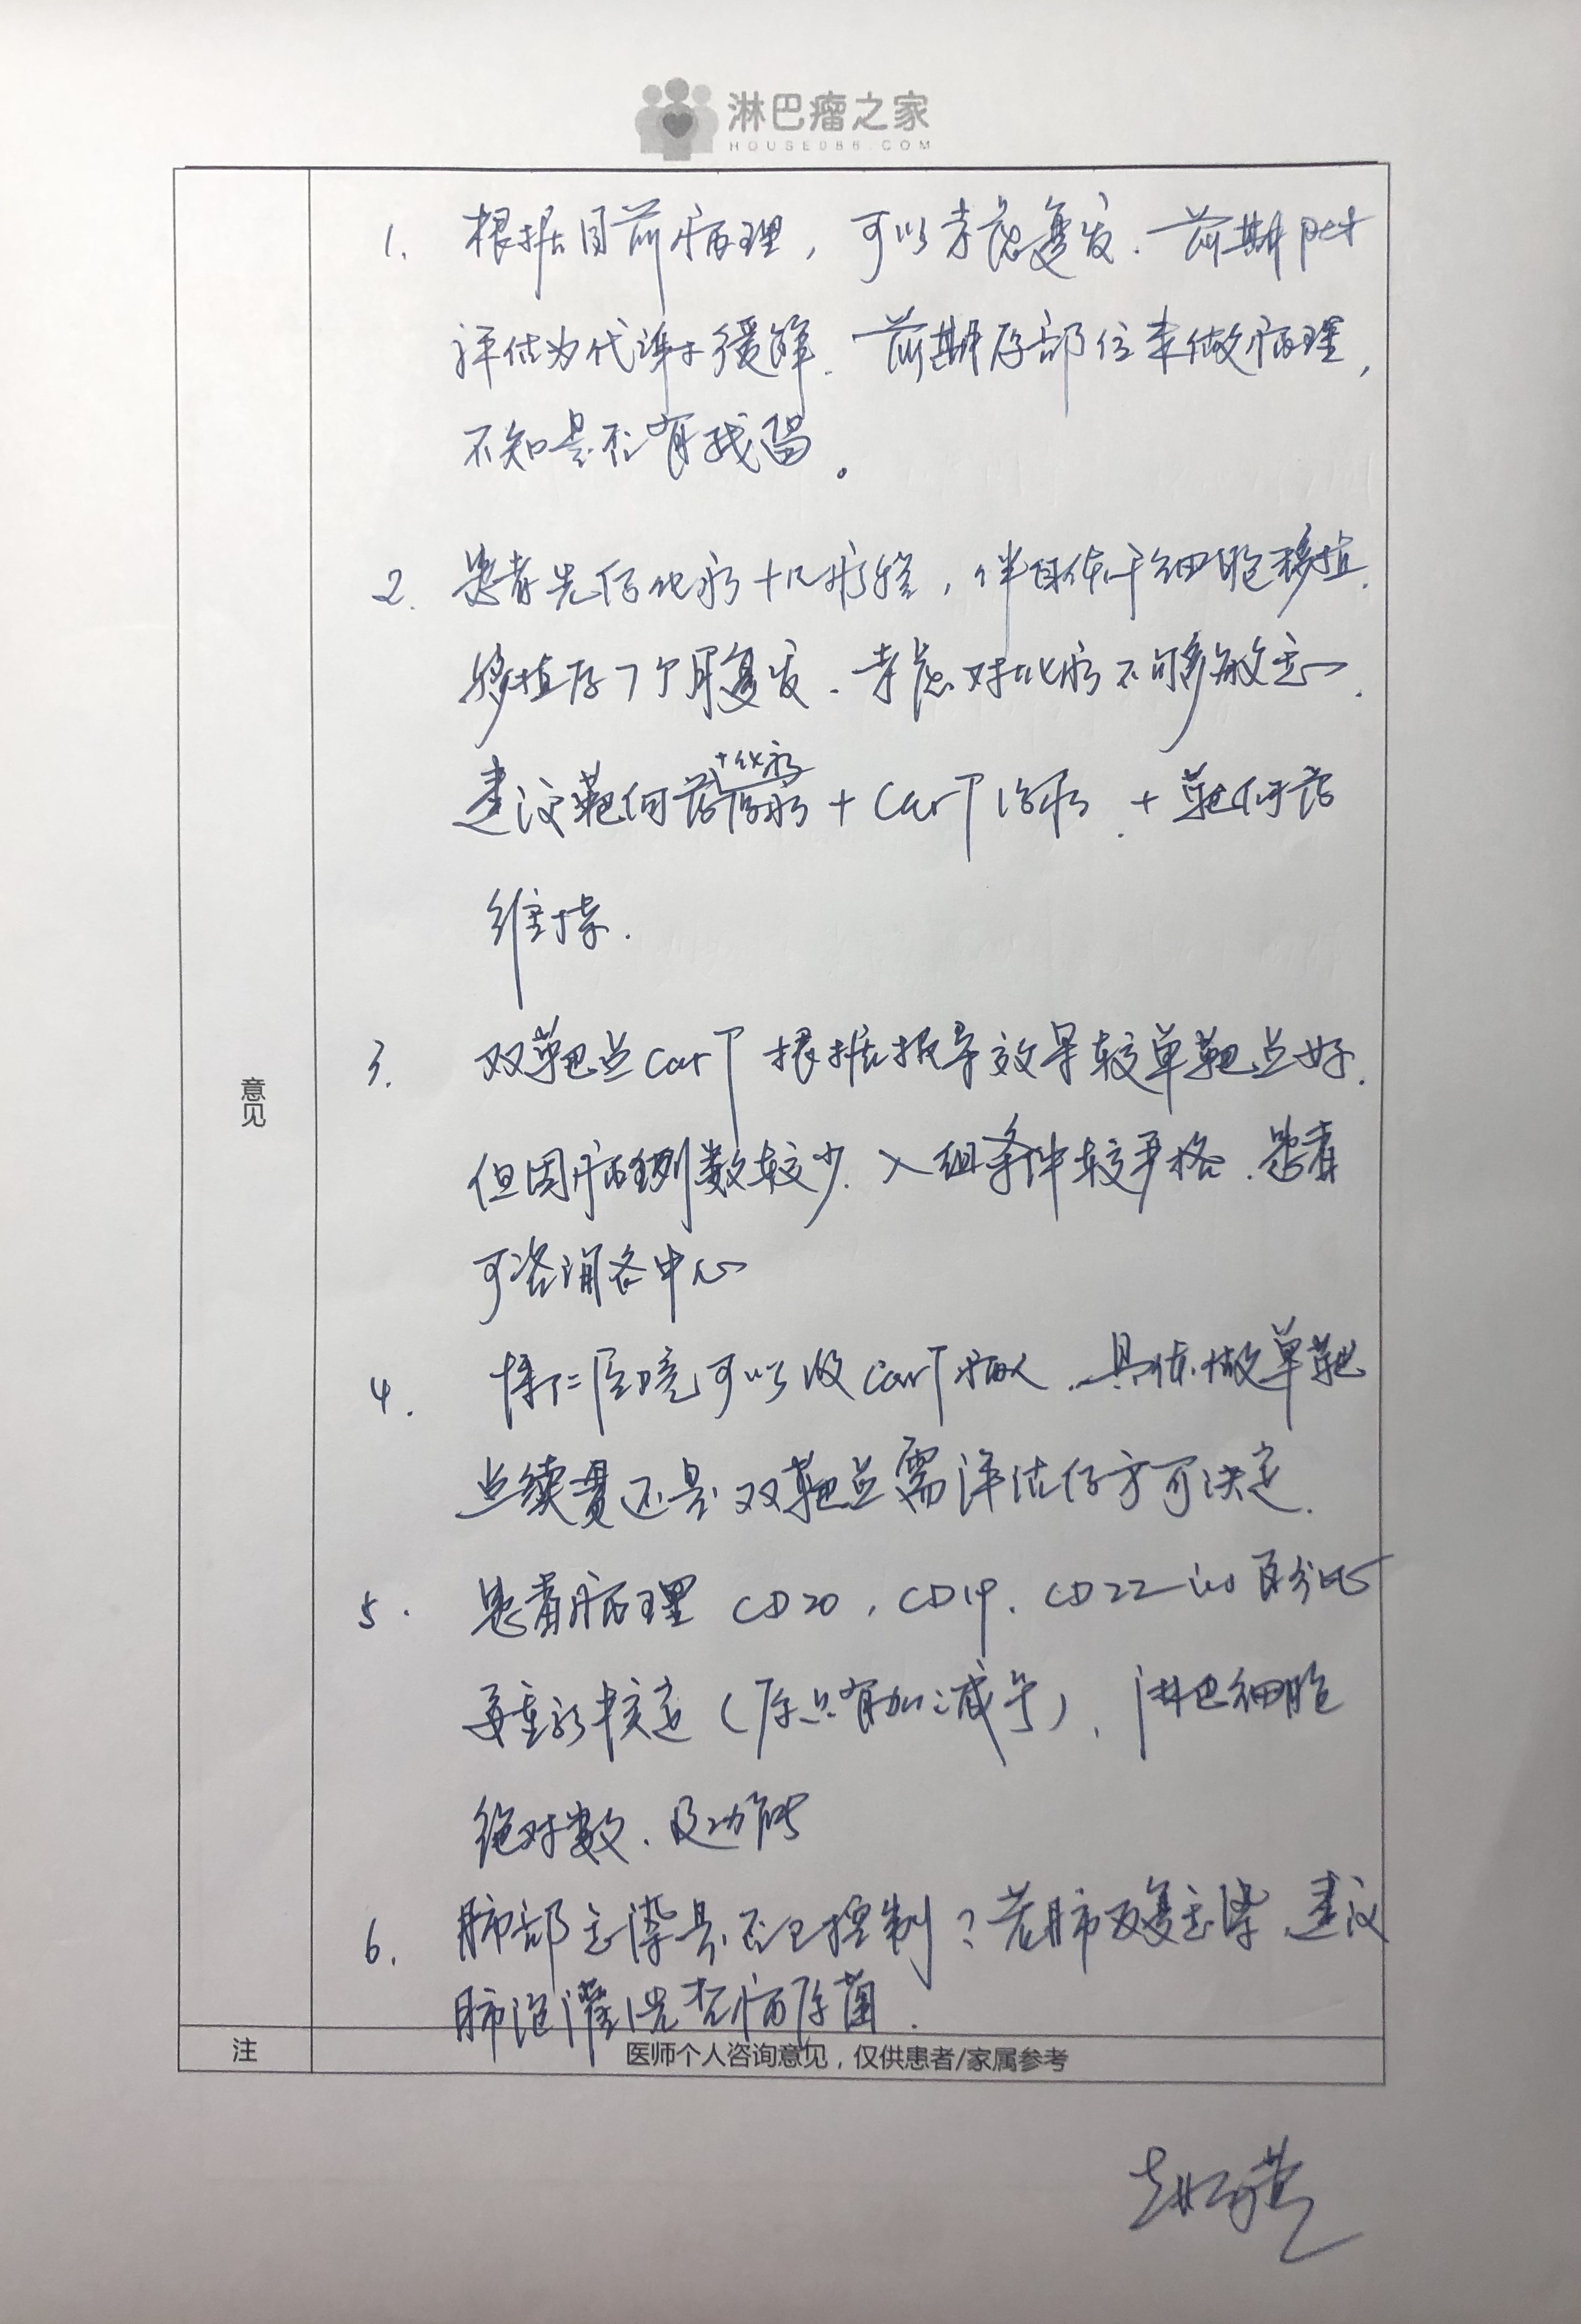 淋巴瘤之家
HOUSE086.COM
1. 根据目前病理，可以考虑复发．前期pet
评估为代谢缓解．前期该部位未做病理，
不知是否有残留。
2. 患者先后化疗十几疗程，伴自体干细胞移植．
移植后7个月复发．考虑对化疗不够敏感．
+化疗
建议靶向药治疗+CarT治疗．+靶向药
维持．
3. 双靶点CarT 根据报导效果较单靶点好．
但因病例数较少．入组条件较严格．患者
可咨询各中心
4. 博仁医院可以收CarT病人．具体做单靶
点续贯还是双靶点需评估后方可决定．
5. 患者病理CD20，CD19．CD22的百分比
再重新核定（原只有加减号），淋巴细胞
绝对数．及功能
6. 肺部感染是否已控制？若肺反复感染．建议
肺泡灌洗查病原菌．
意见
注
医师个人咨询意见，仅供患者/家属参考